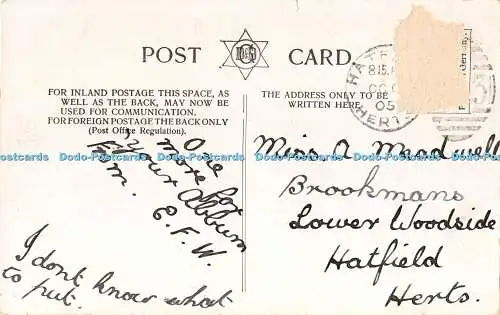 POST CARD
FOR INLAND POSTAGE THIS SPACE, AS
WELL AS THE BACK, MAY NOW BE
USED FOR COMMUNICATION.
FOR FOREIGN POSTAGE THE BACK ONLY
(Post Office Regulation).
THE ADDRESS ONLY TO BE
WRITTEN HERE.
HATF
815
05
HERTS
One
more for
your Abbum
from.
E. F. W.
I dont know what
to put.
Miss A Meadwell
Brookmans
Lower Woodside
Hatfield
Herts.
Dodo-Postcards Dodo-Postcards Dodo-Postcards Dodo-Postcards Dodo-Postcards